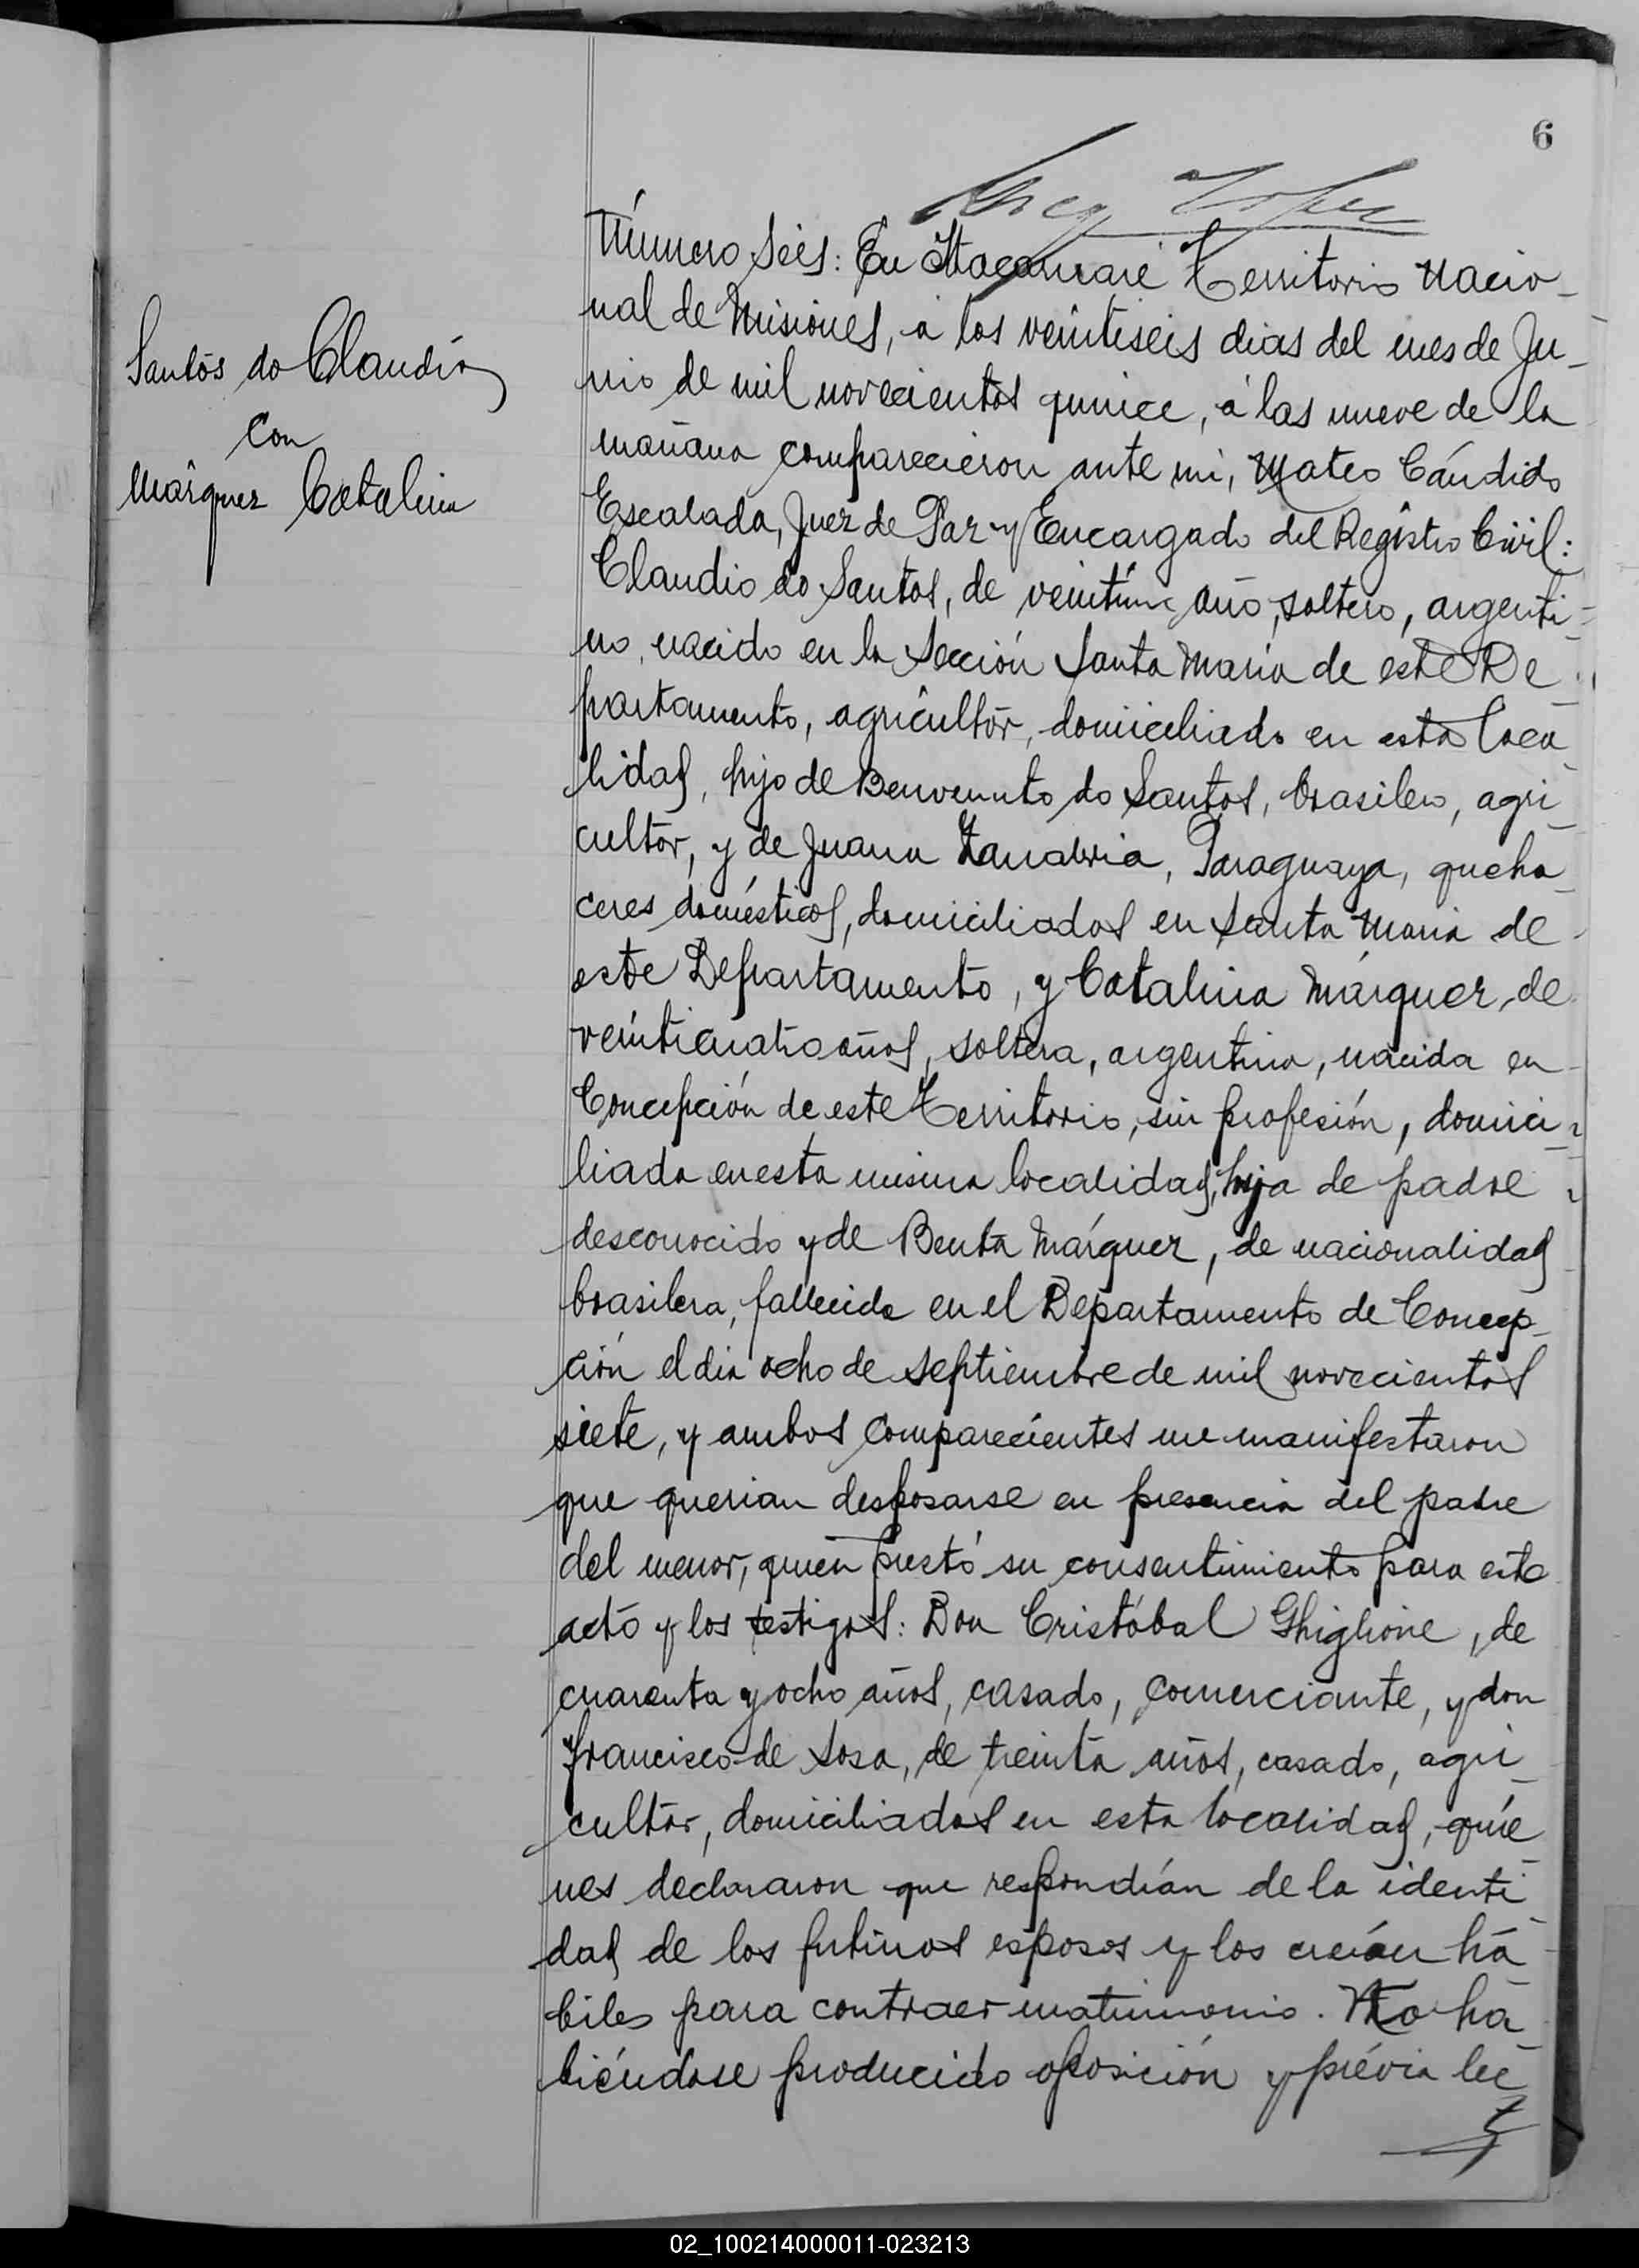 6
Santos do Claudio
con
Márquez Catalina
Número Seis: En Itacaruaré Territorio Nacio-
nal de Misiones, á los veintiseis dias del mes de Ju-
nio de mil novecientos quince, á las nueve de la
mañana comparecieron ante mi, Mateo Cándido
Escalada, Juez de Paz y Encargado del Registro Civil:
Claudio do Santos, de veintiun año, soltero, argenti-
no, nacido en la Sección Santa Maria de este De-
partamento, agricultor, domiciliado en esta loca-
lidad, hijo de Benvenuto do Santos, brasilero, agri-
cultor, y de Juana Zanabria, Paraguaya, queha-
ceres domésticos, domiciliados en Santa Maria de
este Departamento, y Catalina Márquez, de
veinticuatro años, soltera, argentina, nacida en
Concepción de este Territorio, sin profesión, domici-
liada en esta misma localidad, hija de padre
desconocido y de Benta Márquez, de nacionalidad
brasilera, fallecida en el Departamento de Concep-
ción el dia ocho de Septiembre de mil novecientos
siete, y ambos comparecientes me manifestaron
que querian desposarse en presencia del padre
del menor, quien prestó su consentimiento para este
acto y los testigos: Don Cristóbal Ghiglione, de
cuarenta y ocho años, casado, comerciante, y don
Francisco de Sosa, de treinta años, casado, agri-
cultor, domiciliados en esta localidad, quie-
nes declararon que respondían de la identi-
dad de los futuros esposos y los creían há-
biles para contraer matrimonio. No ha-
biéndose producido oposición y prévia lec-
02_100214000011-023213